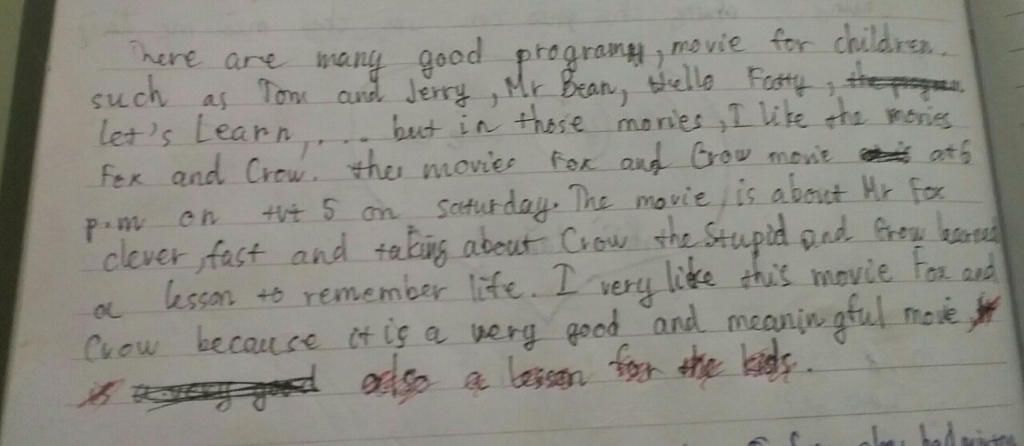 There are many good programs, movie for children.
such as Tom and Jerry, Mr Bean, Hello Fatty,
let's Learn,... but in those movies, I like the movies
Fox and Crow. the movies Fox and Crow movie at 6
p.m on tvt 5 on saturday. The movie is about Mr Fox
clever, fast and taking about Crow the Stupid and Crow learned
a lesson to remember life. I very like this movie Fox and
Crow because it is a very good and meaningful movie
is also a lesson for the kids.